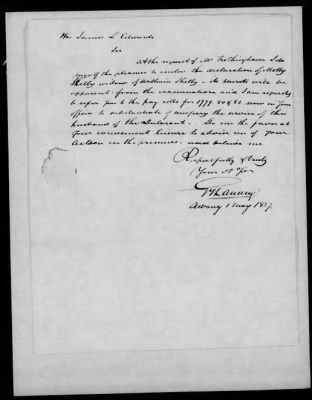 Hon James L Edwards
Sir
At the request of Mr Frothingham I do
myself the pleasure to enclose the declaration of Molly
Shelly widow of William Shelly - its merits will be
apparent from the examination and I am requested
to refer you to the pay rolls for 1779. 80 & 81. now in your
office to substantiate if necessary the service of the
husband of the Declarant. Do me the favor at
Your convenient leisure to advise me of your
Action in the premises. and believe me
Respectfully & truly
Your Ob Svt
Albany 1 May 1837